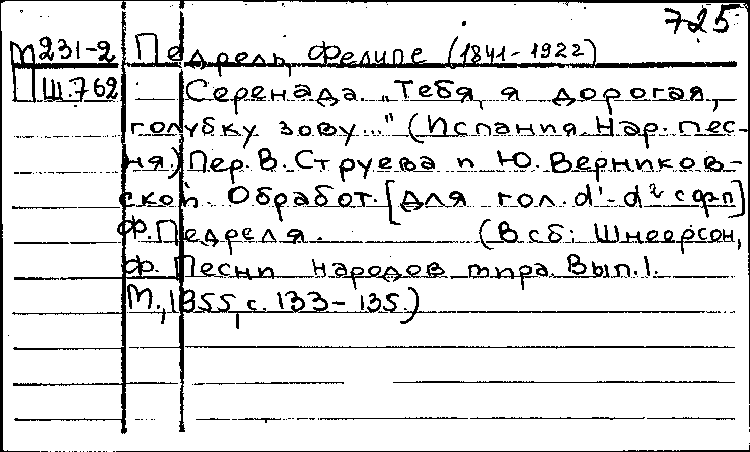 725
М231-2 Педрель, Фелипе (1841-1922)
Ш.762 Серенада "Тебя, я дорогая,
голубку зову..." (Испания. Нар. пес-
ня.) Пер. В. Струева и Ю. Верников-
ской. Обработ. [Для гол. d¹-d² с фп]
Ф. Педреля. (В сб: Шнеерсон,
Ф. Песни народов мира. Вып. 1.
М., 1955, с. 133-135.)